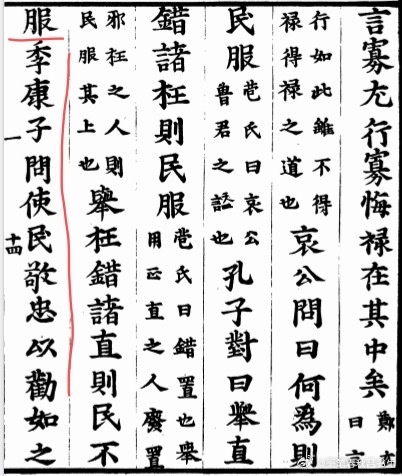 言寡尤行寡悔禄在其中矣鄭玄曰言
行如此雖不得禄得禄之道也哀公問曰何為則
民服苞氏曰哀公魯君之諡也孔子對曰舉直
錯諸枉則民服苞氏曰錯置也舉用正直之人廢置
邪枉之人則民服其上也舉枉錯諸直則民不
服季康子問使民敬忠以勸如之
一
十四